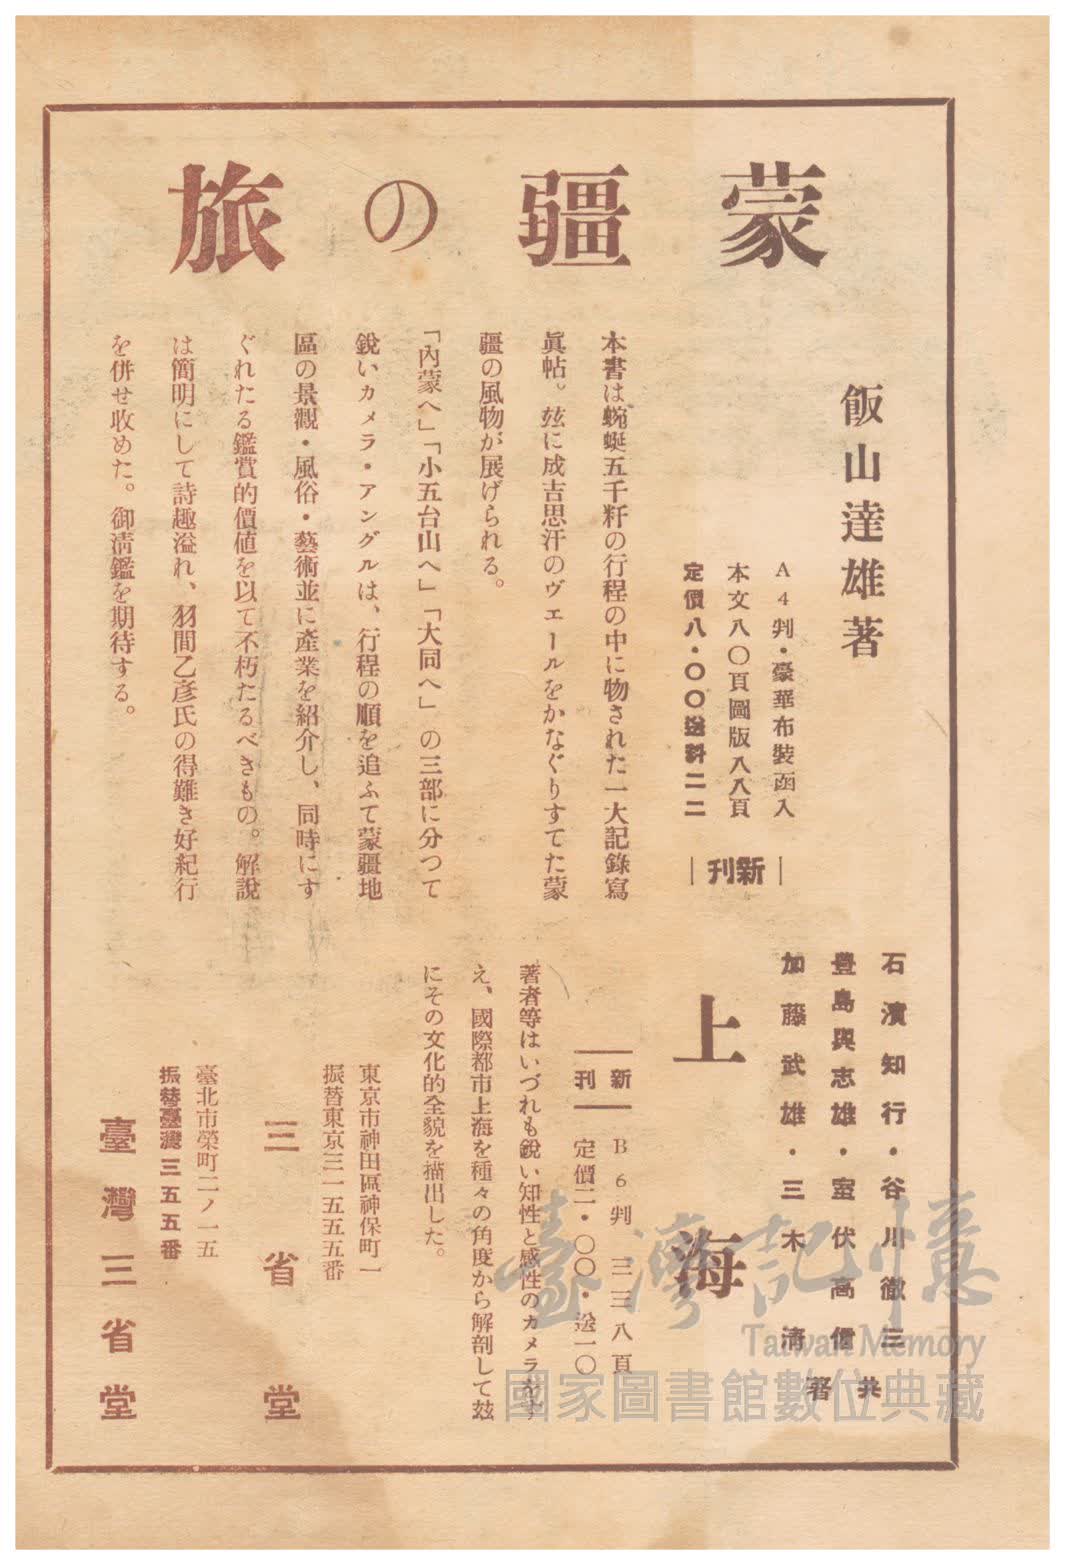 蒙疆の旅
飯山達雄著
A4判・豪華布裝函入
本文八〇頁圖版八八頁
定價八・〇〇送料二二
新刊
本書は蜿蜒五千粁の行程の中に物された一大記錄寫
眞帖。玆に成吉思汗のヴェールをかなぐりすてた蒙
疆の風物が展げられる。
「內蒙へ」「小五台山へ」「大同へ」の三部に分つて
銳いカメラ・アングルは、行程の順を追ふて蒙疆地
區の景觀・風俗・藝術並に產業を紹介し、同時にす
ぐれたる鑑賞的價値を以て不朽たるべきもの。解說
は簡明にして詩趣溢れ、羽間乙彥氏の得難き好紀行
を併せ收めた。御淸鑑を期待する。
石濱知行・谷川徹三
豊島與志雄・室伏高信
加藤武雄・三木淸
共著
上海
新刊
B6判 三三八頁
定價二・〇〇・送一〇
著者等はいづれも銳い知性と感性のカメラを
え、國際都市上海を種々の角度から解剖して玆
にその文化的全貌を描出した。
東京市神田區神保町一
振替東京三一五五五番
三省堂
臺北市榮町二ノ一五
振替臺灣三五五番
臺灣三省堂
臺灣記憶
Taiwan Memory
國家圖書館數位典藏